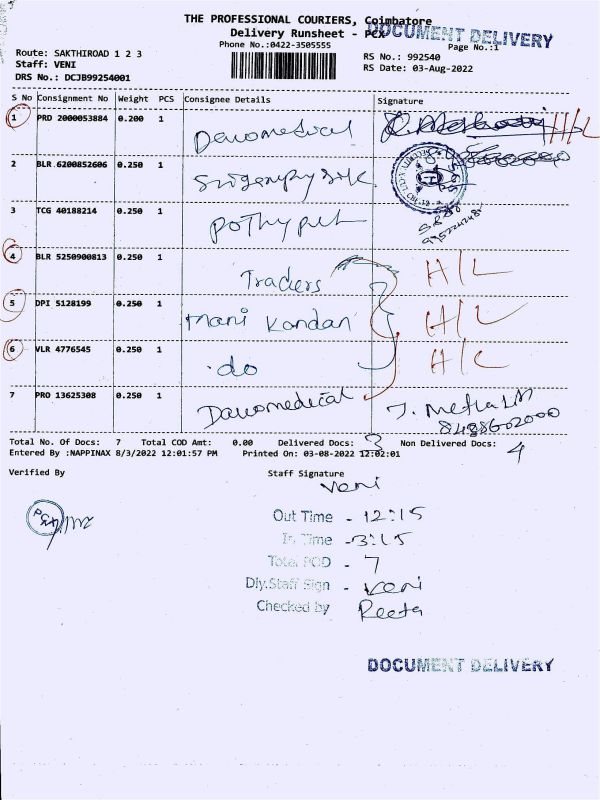 THE PROFESSIONAL COURIERS, Coimbatore
Delivery Runsheet - PCX
DOCUMENT DELIVERY
Phone No.:0422-3505555
Page No.:1
Route: SAKTHIROAD 1 2 3
Staff: VENI
DRS No.: DCJB99254001
RS No.: 992540
RS Date: 03-Aug-2022
S No Consignment No Weight PCS Consignee Details Signature
1 PRD 2000053884 0.200 1 H/L
2 BLR 6200852606 0.250 1
3 TCG 40188214 0.250 1
4 BLR 5250900813 0.250 1 Traders H/L
5 DPI 5128199 0.250 1 Mani Kandan H/L
6 VLR 4776545 0.250 1 do H/L
7 PRO 13625308 0.250 1
Total No. Of Docs: 7 Total COD Amt: 0.00 Delivered Docs: 3 Non Delivered Docs: 4
Entered By :NAPPINAX 8/3/2022 12:01:57 PM Printed On: 03-08-2022 12:02:01
Verified By Staff Signature
veni
Out Time - 12:15
In Time - 3:15
Total POD - 7
Dly.Staff Sign - veni
Checked by Reeta
DOCUMENT DELIVERY